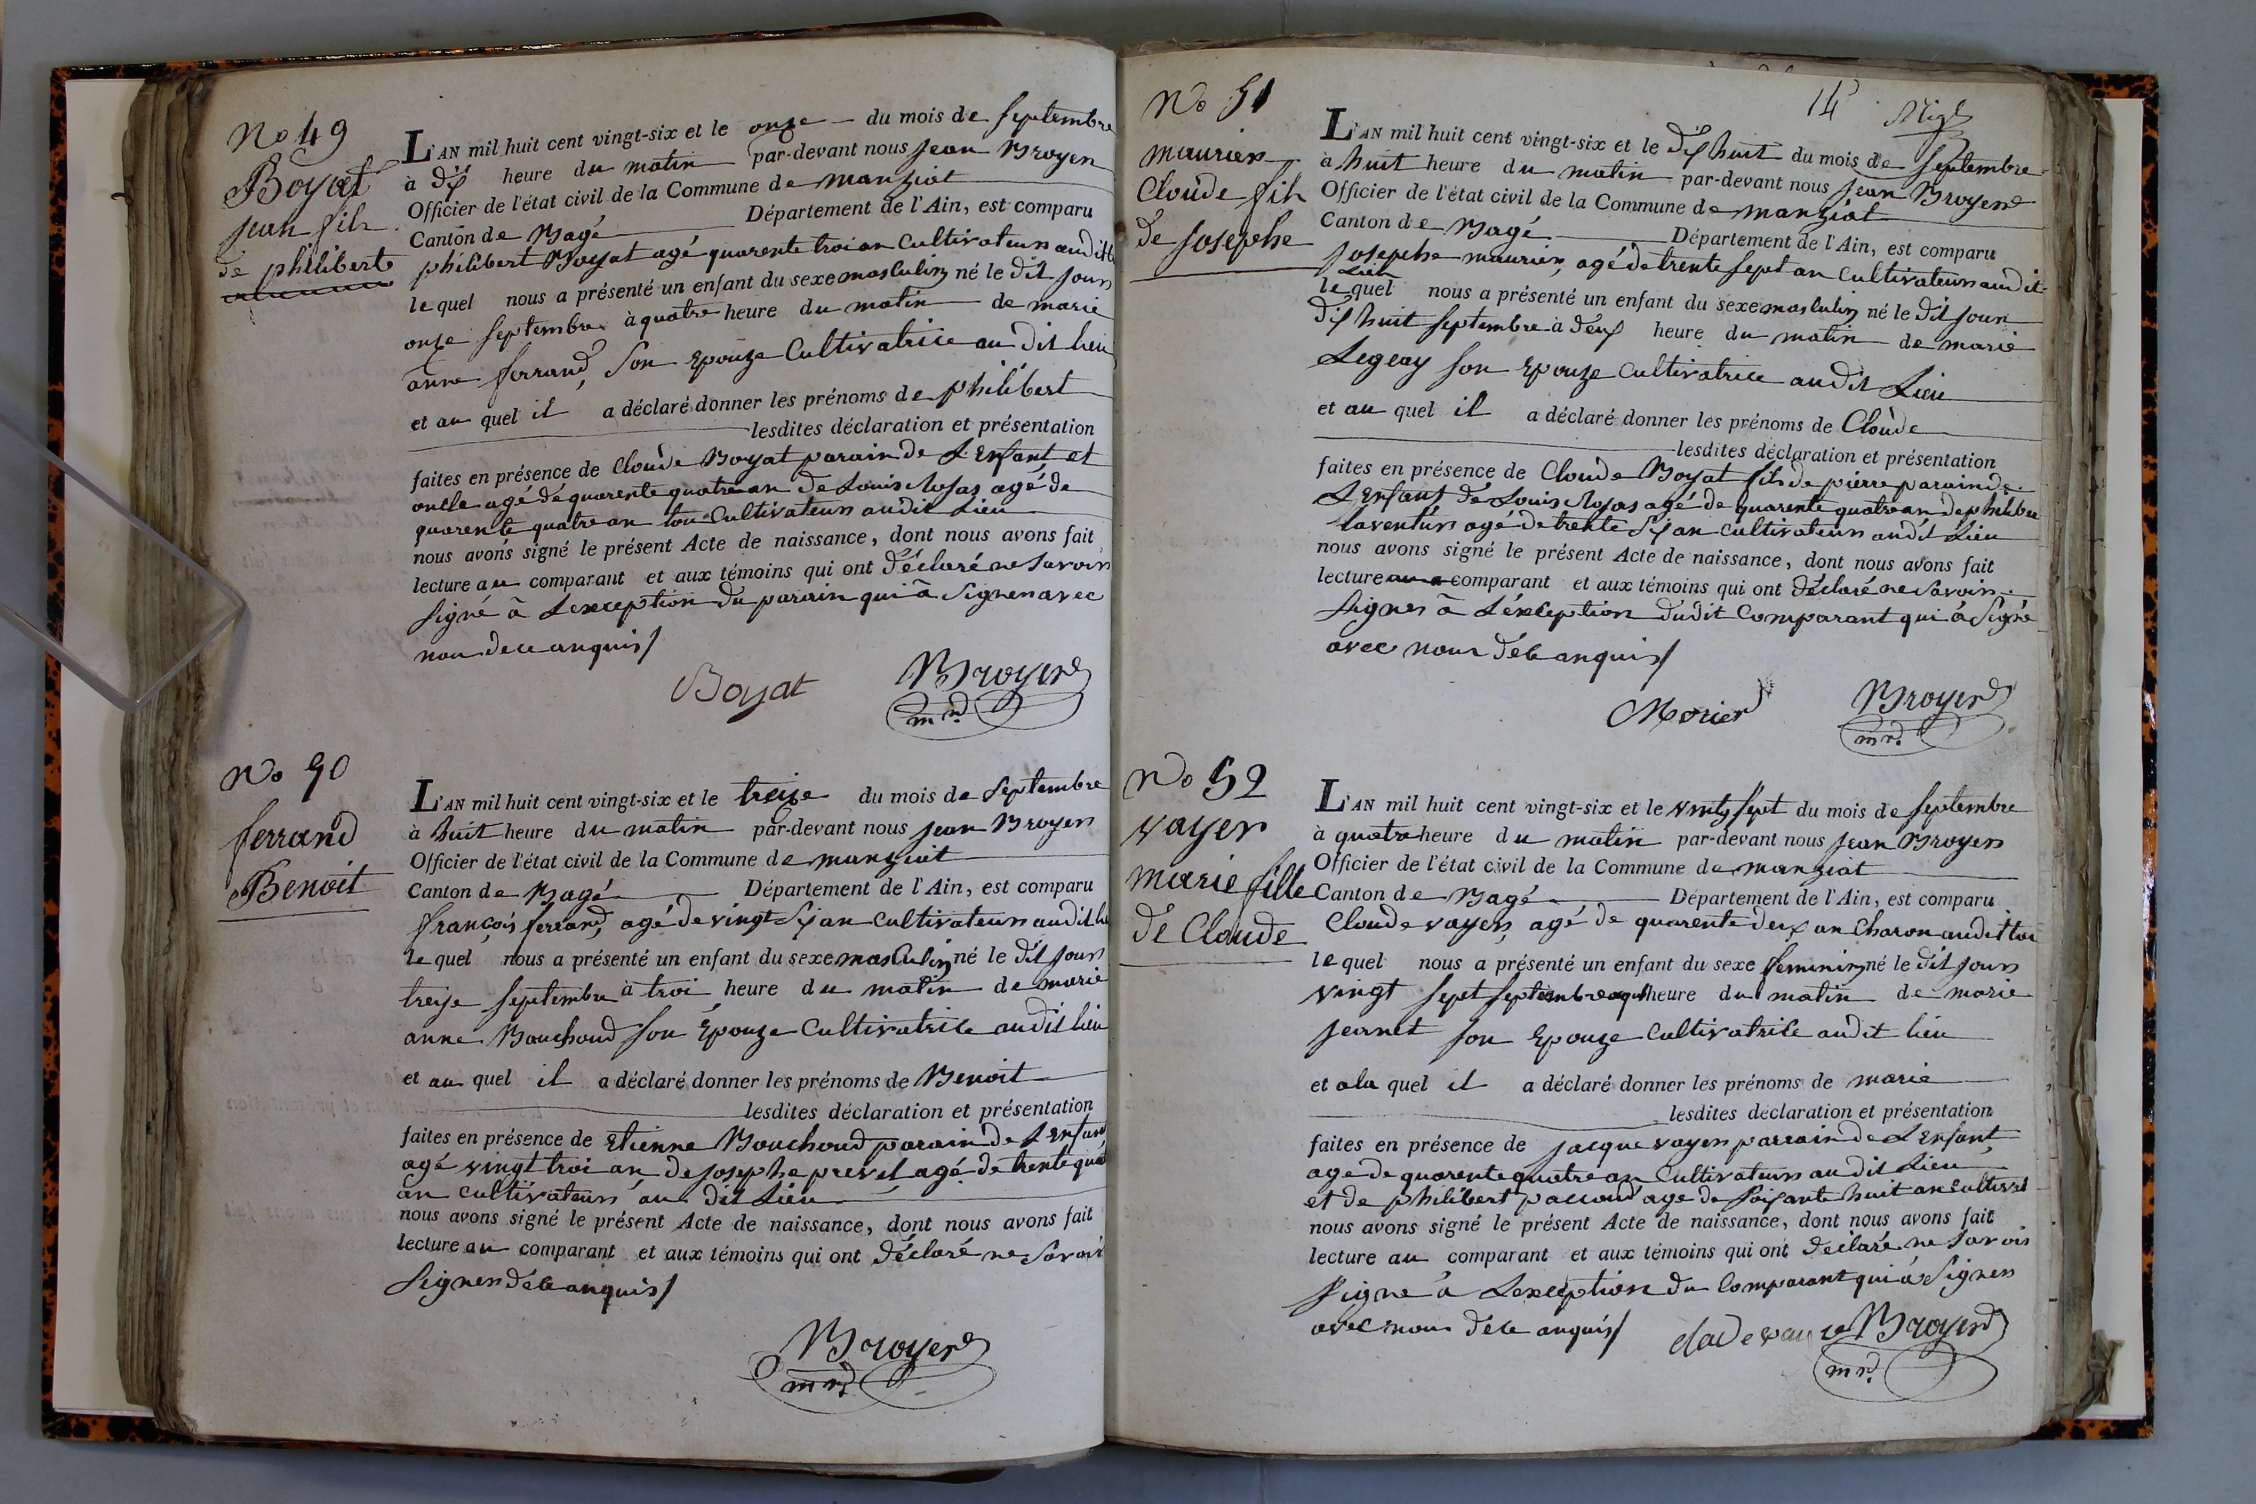 No 49
Boyat
jean fils
de philiberte
L'AN mil huit cent vingt-six et le onze du mois de septembre
à dix heure du matin par-devant nous jean Broyer
Officier de l'état civil de la Commune de manziat
Canton de Bagé Département de l'Ain, est comparu
philibert Boyat agé quarente troi an Cultivateur audit
le quel nous a présenté un enfant du sexe masculin né le dit jour
onze septembre à quatre heure du matin de marie
anne ferrand son Epouze Cultivatrice au dit lieu
et au quel il a déclaré donner les prénoms de philibert
lesdites déclaration et présentation
faites en présence de Cloude Boyat parain de L'Enfant et
oncle agé de quarente quatre an de Louis agé de
quarente quatre an tou Cultivateur audit Lieu
nous avons signé le présent Acte de naissance, dont nous avons fait
lecture au comparant et aux témoins qui ont déclaré ne Savoir
Signé à Lexception du parain qui à Signer avec
nou de ce anquis/
Boyat Broyer
mre
No 50
ferrand
Benoit
L'AN mil huit cent vingt-six et le treize du mois de Septembre
à huit heure du matin par-devant nous jean Broyer
Officier de l'état civil de la Commune de manziat
Canton de Bagé Département de l'Ain, est comparu
françois ferrand, agé de vingt six an cultivateur audit
le quel nous a présenté un enfant du sexe masculin né le dit jour
treize septembre à troi heure du matin de marie
anne Bouchoud son Epouze Cultivatrice audit lieu
et au quel il a déclaré donner les prénoms de Benoit
lesdites déclaration et présentation
faites en présence de Etienne Bouchoud parain de L'Enfant
agé vingt troi an de josephe prevel agé de trente
an cultivateur au dit Lieu
nous avons signé le présent Acte de naissance, dont nous avons fait
lecture au comparant et aux témoins qui ont déclaré ne Savoir
Signer de ce anquis/
Broyer
mre
14
No 51
maurier
Cloude fils
de josephe
L'AN mil huit cent vingt-six et le dix huit du mois de septembre
à huit heure du matin par-devant nous jean Broyer
Officier de l'état civil de la Commune de manziat
Canton de Bagé Département de l'Ain, est comparu
josephe maurier, agé de trente sept an cultivateur audit
Lieu
le quel nous a présenté un enfant du sexe masculin né le dit jour
dix huit septembre à deux heure du matin de marie
Legeay son Epouze cultivatrice au dit Lieu
et au quel il a déclaré donner les prénoms de Cloude
lesdites déclaration et présentation
faites en présence de Cloude Boyat fils de pierre parain de
L'Enfant de Louis agé de quarente quatre an de
agé de trente six an cultivateur audit Lieu
nous avons signé le présent Acte de naissance, dont nous avons fait
lecture au comparant et aux témoins qui ont déclaré ne Savoir
Signer à L'éxception dudit Comparant qui à Signé
avec nour de ce anquis/
Morier Broyer
mre
No 52
vayer
marie fille
de Claude
L'AN mil huit cent vingt-six et le vint sept du mois de septembre
à quatre heure du matin par-devant nous jean Broyer
Officier de l'état civil de la Commune de manziat
Canton de Bagé Département de l'Ain, est comparu
Cloude vayer, agé de quarente deux an Charon audit
le quel nous a présenté un enfant du sexe feminin né le dit jour
vingt sept septembre heure du matin de marie
jeanet son Epouze Cultivatrice audit lieu
et a la quel il a déclaré donner les prénoms de marie
lesdites déclaration et présentation
faites en présence de jacque vayer parrain de L'Enfant,
age de quarente quatre an Cultivateur au dit Lieu
et de philibert paccoud age de soixante huit an
nous avons signé le présent Acte de naissance, dont nous avons fait
lecture au comparant et aux témoins qui ont déclaré ne Savoir
Signé à Lexception du Comparant qui à Signer
avec nour de ce anquis/
Broyer
mre